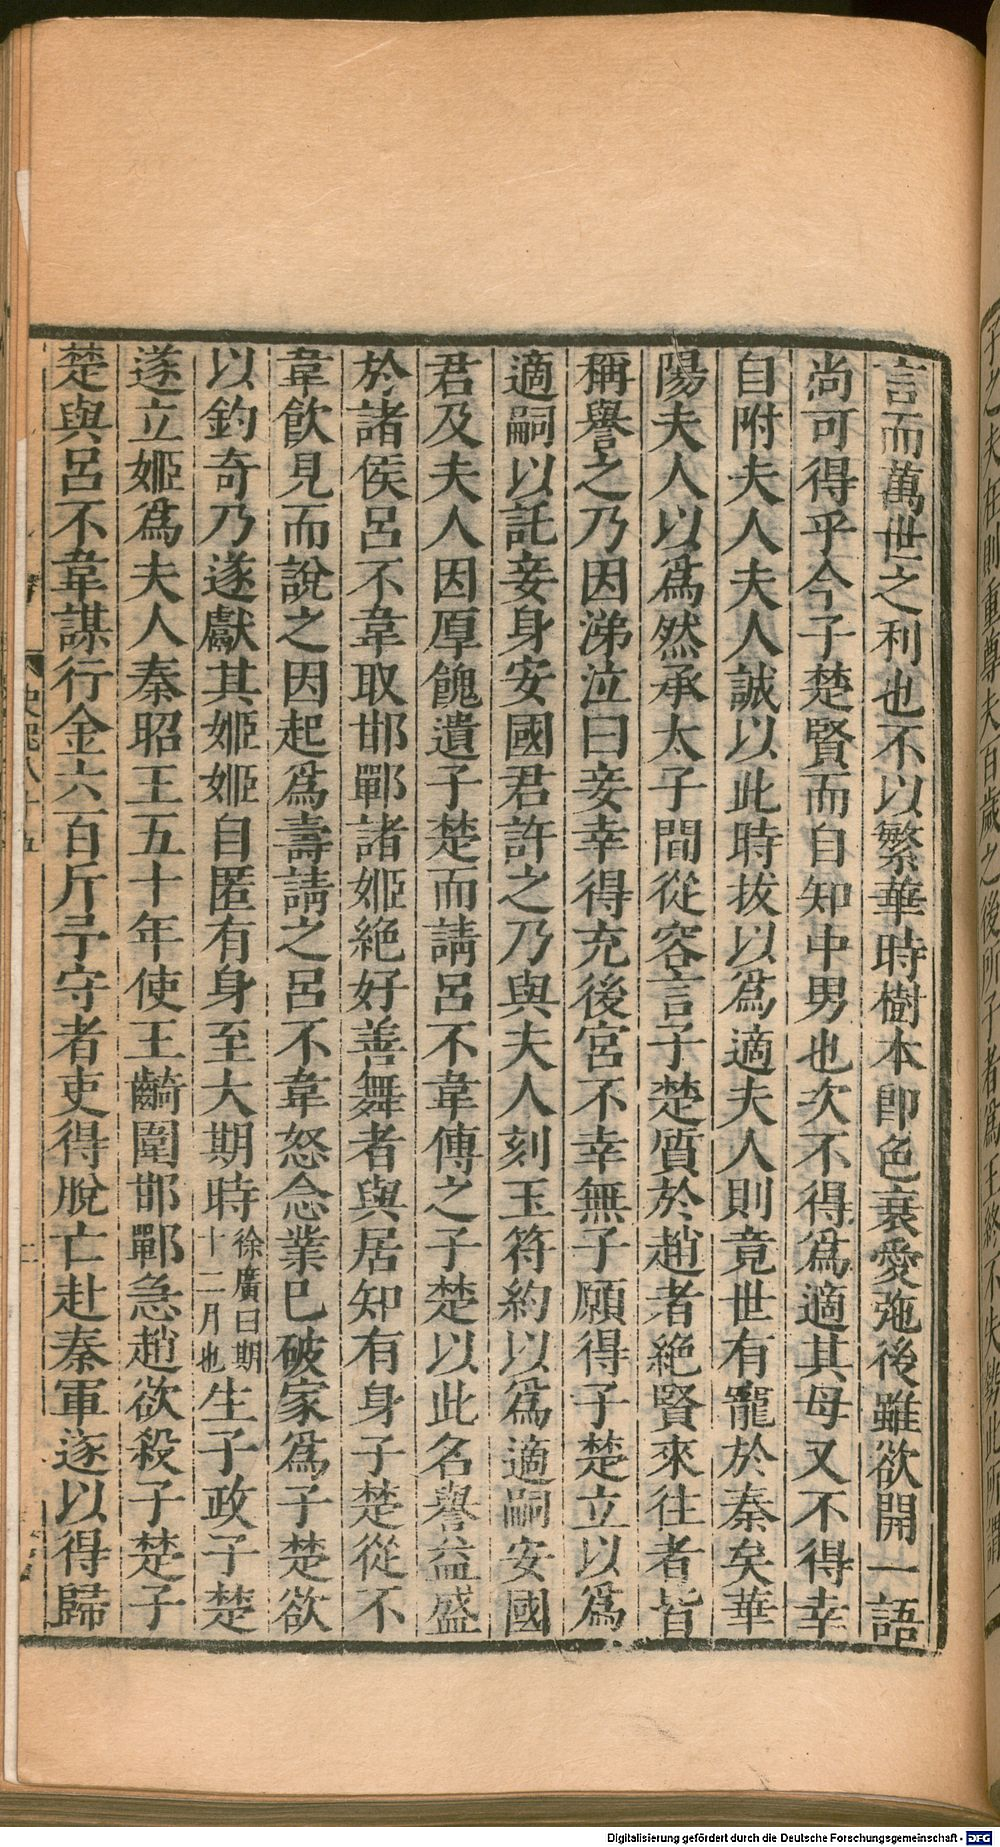 言而萬世之利也不以繁華時樹本卽色衰愛弛後雖欲開一語
尚可得乎今子楚賢而自知中男也次不得爲適其母又不得幸
自附夫人夫人誠以此時拔以爲適夫人則竟世有寵於秦矣華
陽夫人以爲然承太子間從容言子楚質於趙者絶賢來往者皆
稱譽之乃因涕泣曰妾幸得充後宮不幸無子願得子楚立以爲
適嗣以託妾身安國君許之乃與夫人刻玉符約以爲適嗣安國
君及夫人因厚餽遺子楚而請呂不韋傅之子楚以此名譽益盛
於諸侯呂不韋取邯鄲諸姬絶好善舞者與居知有身子楚從不
韋飮見而說之因起爲壽請之呂不韋怒念業已破家爲子楚欲
以釣奇乃遂獻其姬姬自匿有身至大期時徐廣曰期十二月也生子政子楚
遂立姬爲夫人秦昭王五十年使王齮圍邯鄲急趙欲殺子楚子
楚與呂不韋謀行金六百斤予守者吏得脫亡赴秦軍遂以得歸
史記八十五
Digitalisierung gefördert durch die Deutsche Forschungsgemeinschaft - DFG